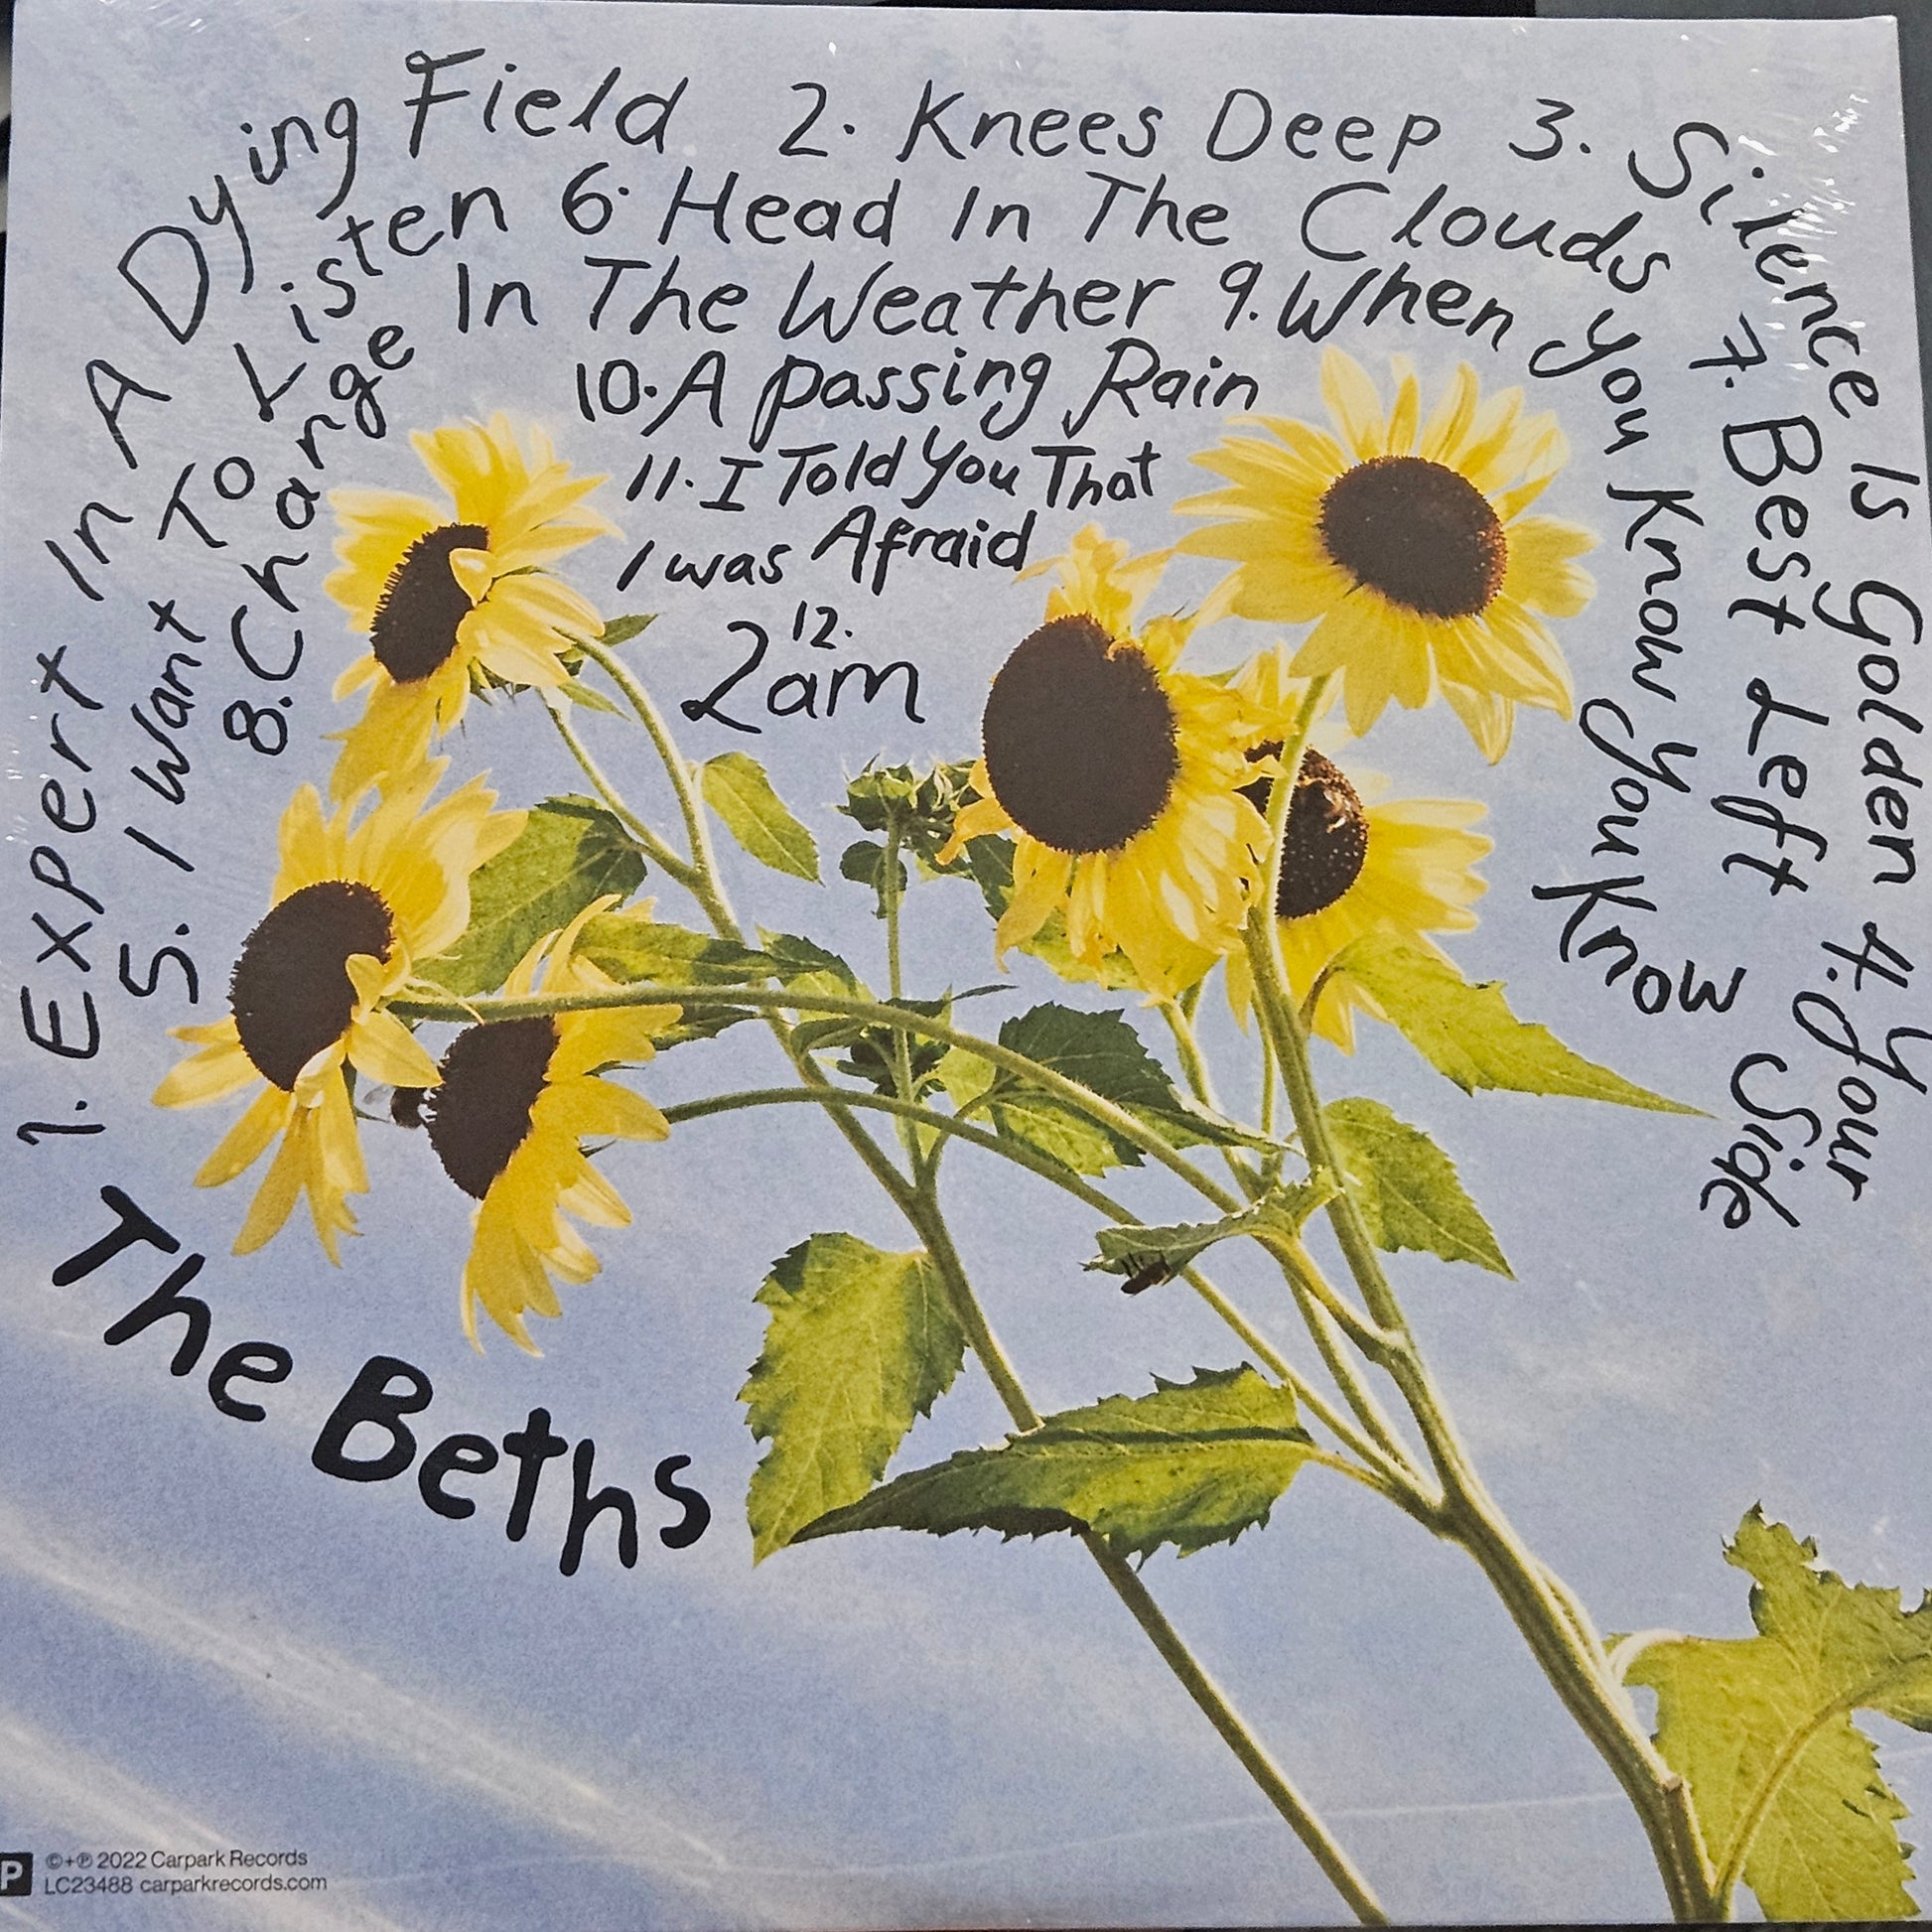 1. Expert In A Dying Field 2. Knees Deep 3. Silence Is Golden 4. Your Side
5. I Want To Listen 6. Head In The Clouds 7. Best Left
8. Change In The Weather 9. When You Know You Know
10. A Passing Rain
11. I Told You That
I was Afraid
12.
2am
The Beths
P
©+℗ 2022 Carpark Records
LC23488 carparkrecords.com